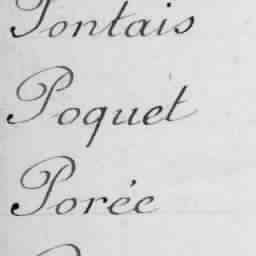 Pontais
Poquet
Porée